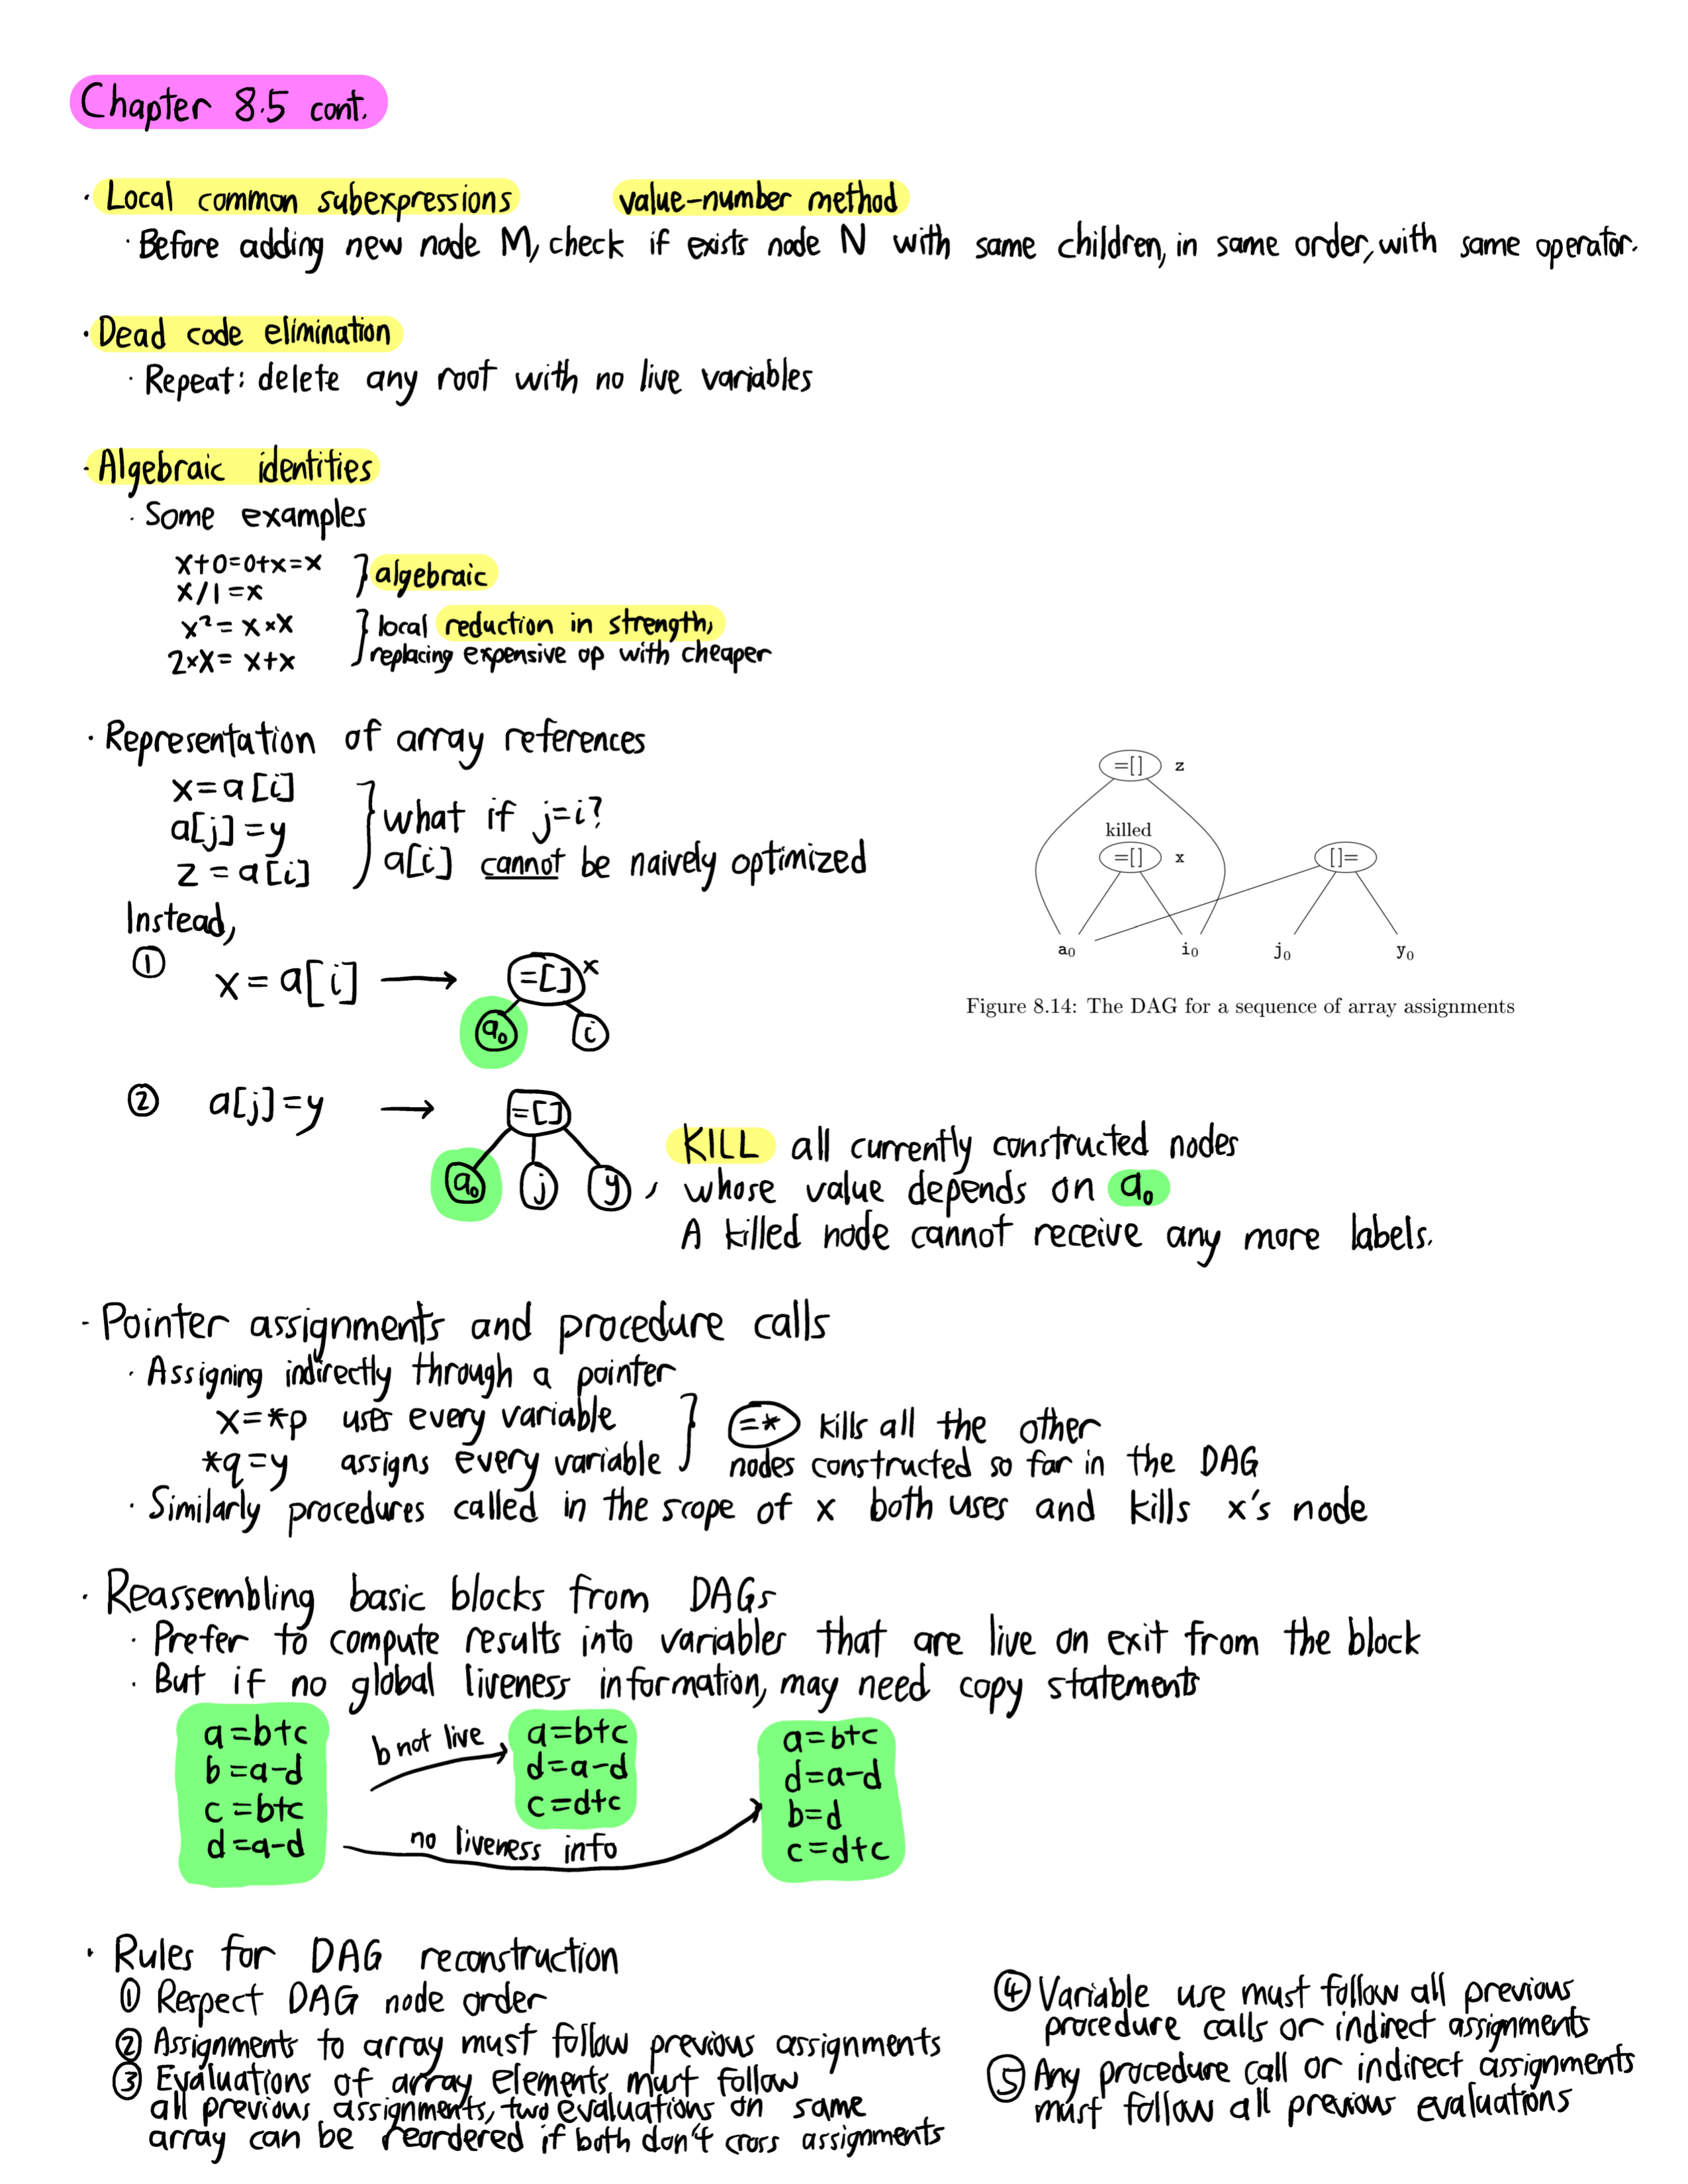 Chapter 8.5 cont.
· Local common subexpressions value-number method
· Before adding new node M, check if exists node N with same children, in same order, with same operator.
· Dead code elimination
· Repeat: delete any root with no live variables
· Algebraic identities
· Some examples
x+0=0+x=x
x/1=x
} algebraic
x²=x*x
2*x=x+x
} local reduction in strength,
replacing expensive op with cheaper
· Representation of array references
x=a[i]
a[j]=y
z=a[i]
} what if j=i?
a[i] cannot be naively optimized
Instead,
① x=a[i] → =[] x
a₀ i
② a[j]=y → =[]
a₀ j y ,
KILL all currently constructed nodes
whose value depends on a₀
A killed node cannot receive any more labels.
=[] z
killed
=[] x []=
a₀ i₀ j₀ y₀
Figure 8.14: The DAG for a sequence of array assignments
· Pointer assignments and procedure calls
· Assigning indirectly through a pointer
x=*p uses every variable
*q=y assigns every variable
} =* kills all the other
nodes constructed so far in the DAG
· Similarly procedures called in the scope of x both uses and kills x's node
· Reassembling basic blocks from DAGs
· Prefer to compute results into variables that are live on exit from the block
· But if no global liveness information, may need copy statements
a=b+c
b=a-d
c=b+c
d=a-d
b not live
a=b+c
d=a-d
c=d+c
no liveness info
a=b+c
d=a-d
b=d
c=d+c
· Rules for DAG reconstruction
① Respect DAG node order
② Assignments to array must follow previous assignments
③ Evaluations of array elements must follow
all previous assignments, two evaluations on same
array can be reordered if both don't cross assignments
④ Variable use must follow all previous
procedure calls or indirect assignments
⑤ Any procedure call or indirect assignments
must follow all previous evaluations